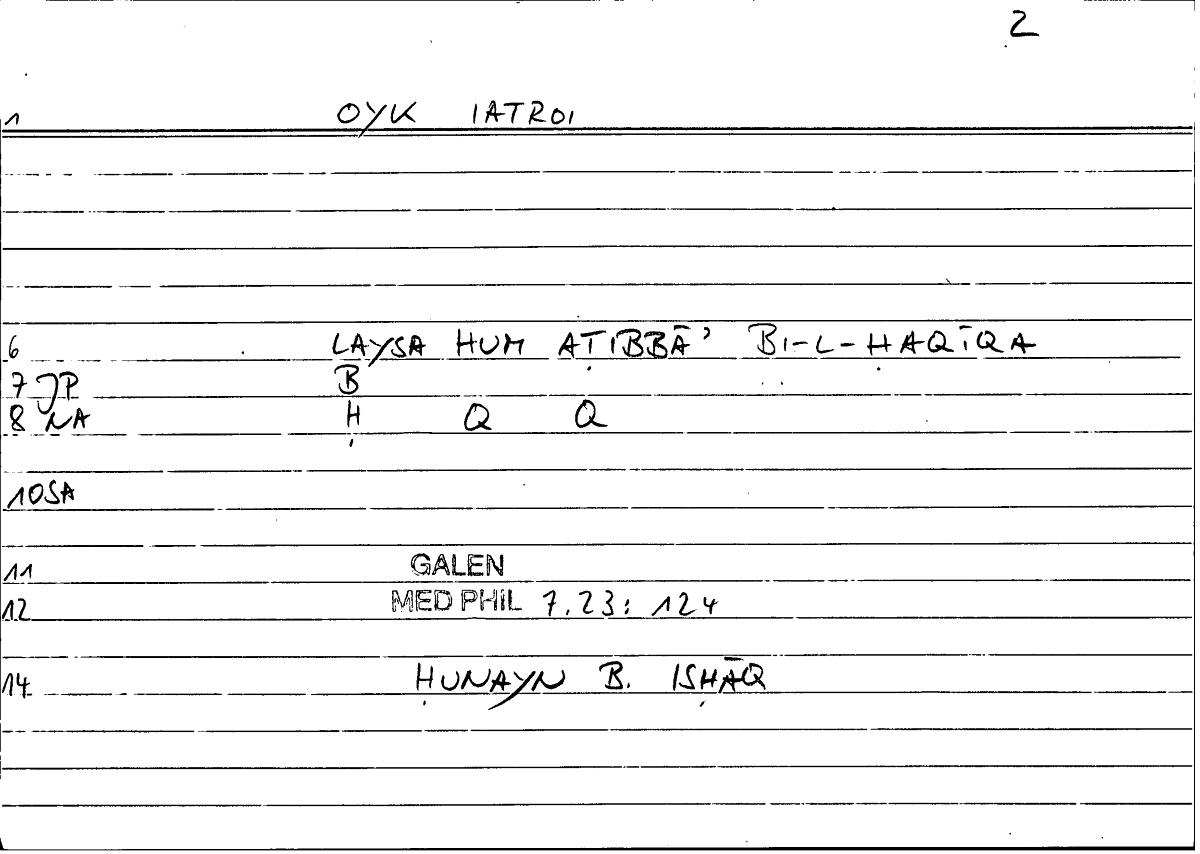 2
1 OYK IATROI
6 LAYSA HUM AṬIBBĀʾ BI-L-ḤAQĪQA
7 JP B
8 NA Ḥ Q Q
10 SA
11 GALEN
12 MED PHIL 7.23: 124
14 ḤUNAYN B. ISḤĀQ